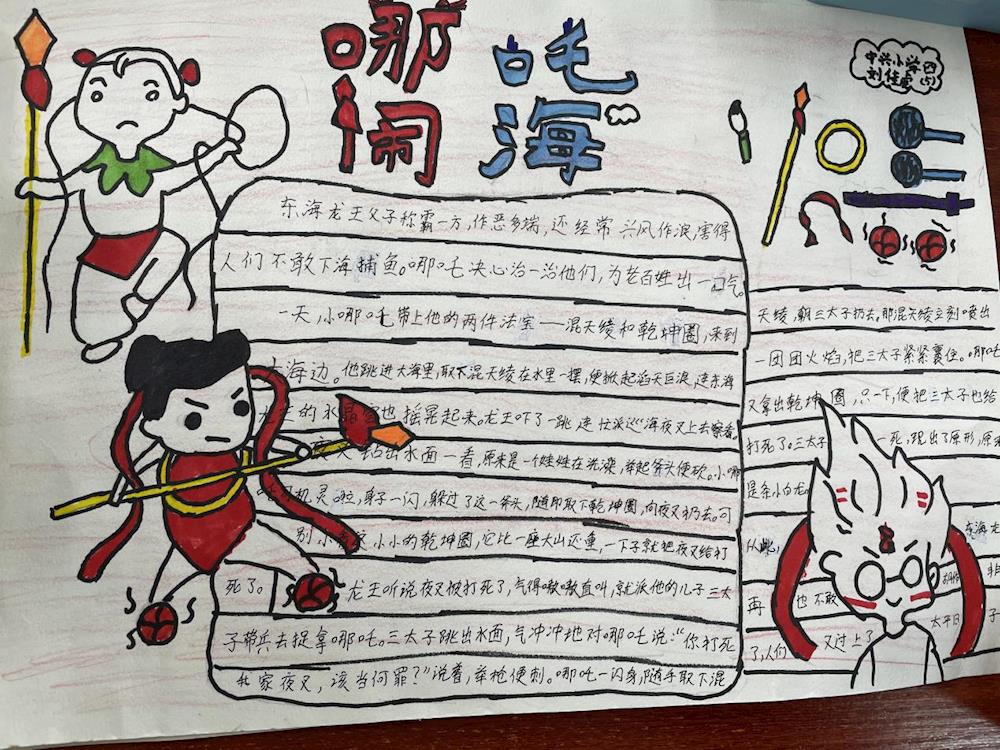 哪吒
闹海
中兴小学四(5)
刘佳
东海龙王父子称霸一方,作恶多端,还经常兴风作浪,害得
人们不敢下海捕鱼。哪吒决心治一治他们,为老百姓出一口气。
一天,小哪吒带上他的两件法宝——混天绫和乾坤圈,来到
海边。他跳进大海里,取下混天绫在水里一摆,便掀起滔天巨浪,连东海
的水晶宫也摇晃起来。龙王吓了一跳,连忙派巡海夜叉上去察看。
夜叉钻出水面一看,原来是个娃娃在洗澡,举起斧头便砍。小哪
机灵啦,身子一闪,躲过了这一斧头,随即取下乾坤圈,向夜叉扔去。可
别小 小小的乾坤圈,它比一座大山还重,一下子就把夜叉给打
死了。 龙王听说夜叉被打死了,气得嗷嗷直叫,就派他的儿子三太
子带兵去捉拿哪吒。三太子跳出水面,气冲冲地对哪吒说:“你打死
我家夜叉,该当何罪?”说着,举枪便刺。哪吒一闪身,随手取下混
天绫,朝三太子扔去。那混天绫立刻喷出
一团团火焰,把三太子紧紧裹住。哪吒
又拿出乾坤圈,只一下,便把三太子也给
打死了。三太子一死,现出了原形,原来
是条小白龙。
从此, 东海龙
再也不敢 胡作非
了,人们又过上了太平日子